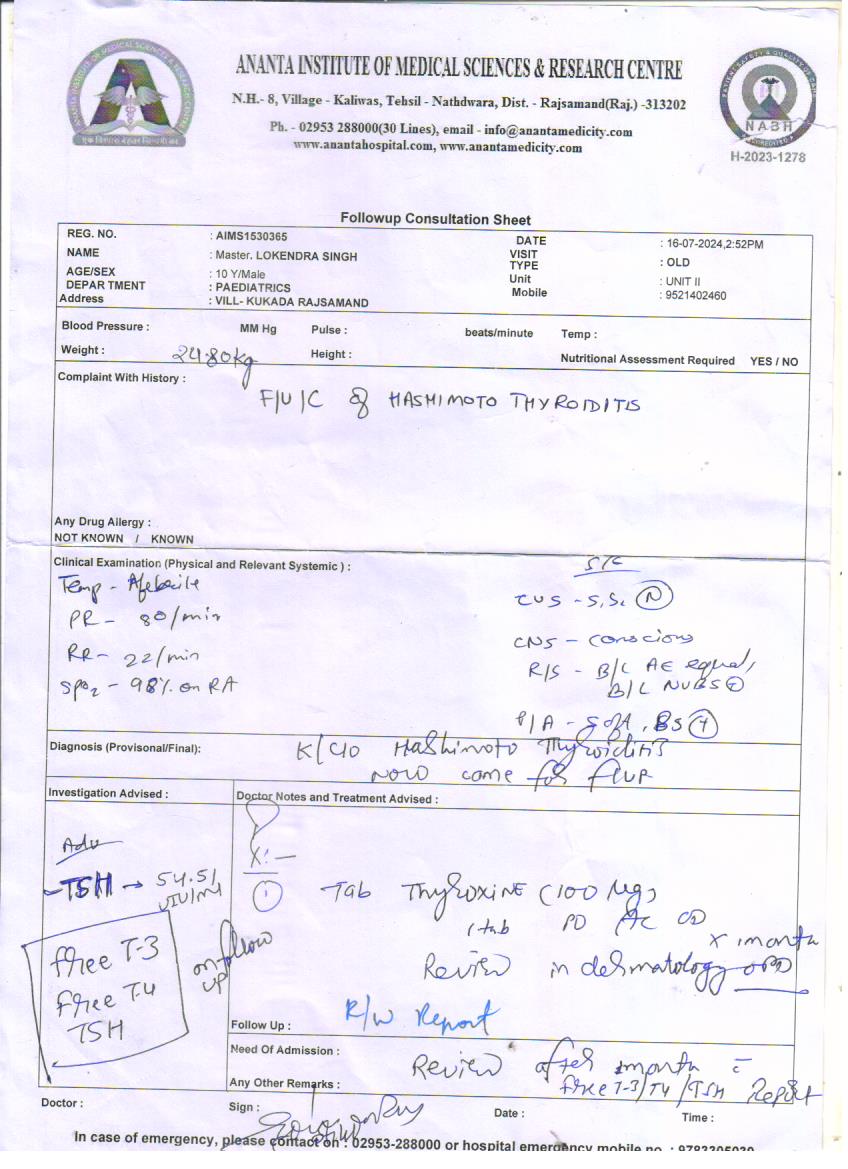 ANANTA INSTITUTE OF MEDICAL SCIENCES & RESEARCH CENTRE
N.H.- 8, Village - Kaliwas, Tehsil - Nathdwara, Dist. - Rajsamand(Raj.) -313202
Ph. - 02953 288000(30 Lines), email - info@anantamedicity.com
www.anantahospital.com, www.anantamedicity.com
ANANTA INSTITUTE OF MEDICAL SCIENCES & RESEARCH CENTRE
NABH
H-2023-1278
Followup Consultation Sheet
REG. NO. : AIMS1530365 DATE : 16-07-2024,2:52PM
NAME : Master. LOKENDRA SINGH VISIT TYPE : OLD
AGE/SEX : 10 Y/Male Unit : UNIT II
DEPAR TMENT : PAEDIATRICS Mobile : 9521402460
Address : VILL- KUKADA RAJSAMAND
Blood Pressure : MM Hg Pulse : beats/minute Temp :
Weight : 24.80kg Height : Nutritional Assessment Required YES / NO
Complaint With History :
F/U/C of HASHIMOTO THYROIDITIS
Any Drug Allergy :
NOT KNOWN / KNOWN
Clinical Examination (Physical and Relevant Systemic ) :
S/E
Temp - Afebrile
PR - 80/min
RR - 22/min
SPO2 - 98% on RA
CVS - S1S2 (N)
CNS - conscious
R/S - B/L AE equal,
B/L NVBS (+)
P/A - Soft, BS (+)
Diagnosis (Provisonal/Final):
K/C/O Hashimoto Thyroiditis
Now come for f/up
Investigation Advised :
Adv
- TSH → 54.51
UIU/ml
free T-3
free T-4
TSH
on follow up
Doctor Notes and Treatment Advised :
① Tab Thyroxine (100 Mcg)
1 tab PO AC OD
x 1month
Review in dermatology OPD
R/w Report
Follow Up :
Need Of Admission :
Review after 1month c̄
free T-3/T4/TSH Report
Any Other Remarks :
Doctor : Sign : Date : Time :
In case of emergency, please contact on : 02953-288000 or hospital emergency mobile no. :